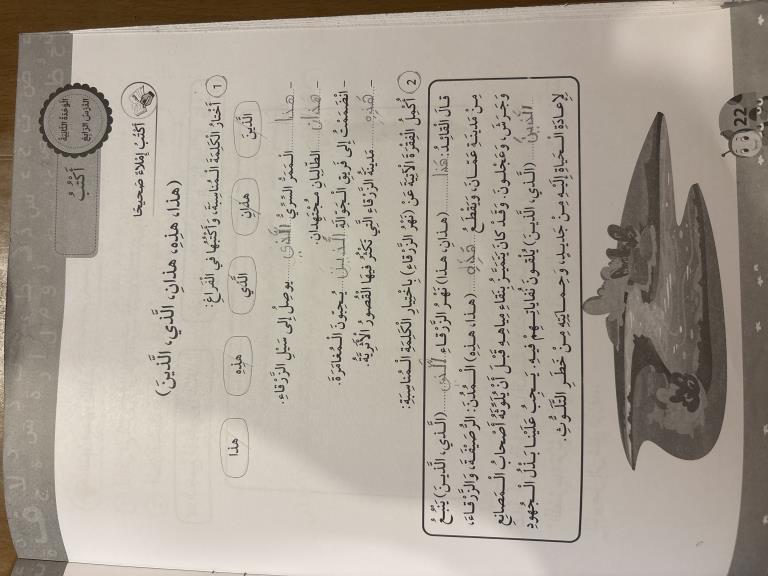 الْوَحْدَةُ الثَّانِيَةُ
الدَّرْسُ الرَّابِعُ
أَكْتُبُ
أَكْتُبُ إِمْلَاءً صَحِيحًا
(هذا، هذِهِ، هذانِ، الَّذي، الَّذينَ)
1 أَخْتارُ الْكَلِمَةَ الْمُناسِبَةَ، وَأَكْتُبُها فِي الْفَراغِ:
الَّذينَ هذانِ الَّذي هذِهِ هذا
- هذا الْمَمَرُّ السِّرِّيُّ الَّذي يوصِلُ إِلى سَيْلِ الزَّرْقاءِ.
- هذان الطّالِبانِ مُجْتَهِدانِ.
- انْضَمَمْتُ إِلى فَريقِ الْجَوّالَةِ الذين يُحِبّونَ الْمُغامَرَةَ.
- هذه مَدينَةُ الزَّرْقاءِ الَّتي تَكْثُرُ فيهَا الْقُصورُ الْأَثَرِيَّةُ.
2 أُكْمِلُ الْفِقْرَةَ الْآتِيَةَ عَنْ (نَهْرِ الزَّرْقاءِ) بِاخْتِيارِ الْكَلِمَةِ الْمُناسِبَةِ:
قالَ الْقائِدُ: هذا (هذانِ، هذا) نَهْرُ الزَّرْقاءِ الذي (الَّذي، الَّذينَ) يَنْبُعُ
مِنْ مَدينَةِ عَمّانَ، وَيَقْطَعُ هذه (هذا، هذِهِ) الْمُدُنَ: الرُّصَيْفَةَ، وَالزَّرْقاءَ،
وَجَرَشَ، وَعَجْلونَ. وَقَدْ كانَ يَتَمَيَّزُ بِنَقاءِ مِياهِهِ قَبْلَ أَنْ يُلَوِّثَهُ أَصْحابُ الْمَصانِعِ
الذين (الَّذي، الَّذينَ) يُلْقونَ نُفاياتِهِمْ فيهِ. يَجِبُ عَلَيْنا بَذْلُ الْجُهودِ
لِإِعادَةِ الْحَياةِ إِلَيْهِ مِنْ جَديدٍ، وَحِمايَتِهِ مِنْ خَطَرِ التَّلَوُّثِ.
22